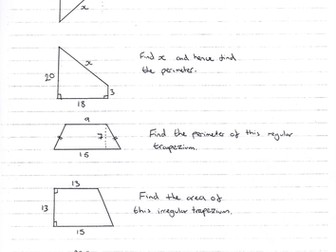 x
x
20
3
18
Find x and hence find
the perimeter.
9
7
15
Find the perimeter of this regular
trapezium.
13
13
15
Find the area of
this irregular trapezium.